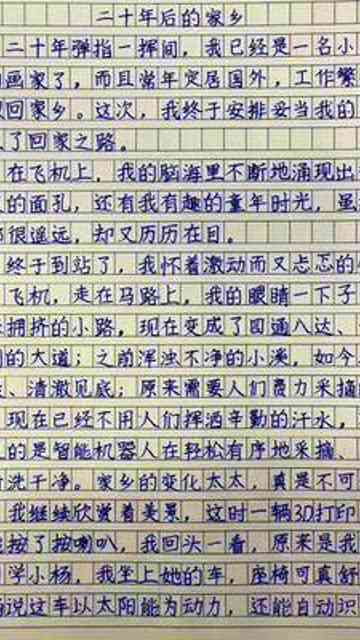 二十年后的家乡
二十年弹指一挥间，我已经是一名小
画家了，而且常年定居国外，工作繁
回家乡。这次，我终于安排妥当我的
了回家之路。
在飞机上，我的脑海里不断地涌现出
的面孔，还有我有趣的童年时光，虽
很遥远，却又历历在目。
终于到站了，我怀着激动而又忐忑的
飞机，走在马路上，我的眼睛一下子
拥挤的小路，现在变成了四通八达、
的大道；之前浑浊不净的小溪，如今
、清澈见底；原来需要人们费力采摘
现在已经不用人们挥洒辛勤的汗水，
的是智能机器人在轻松有序地采摘、
洗干净。家乡的变化太大，真是不可
我继续欣赏着美景，这时一辆3D打印
按了按喇叭，我回头一看，原来是我
学小杨，我坐上她的车，座椅可真舒
说这车以太阳能为动力，还能自动识